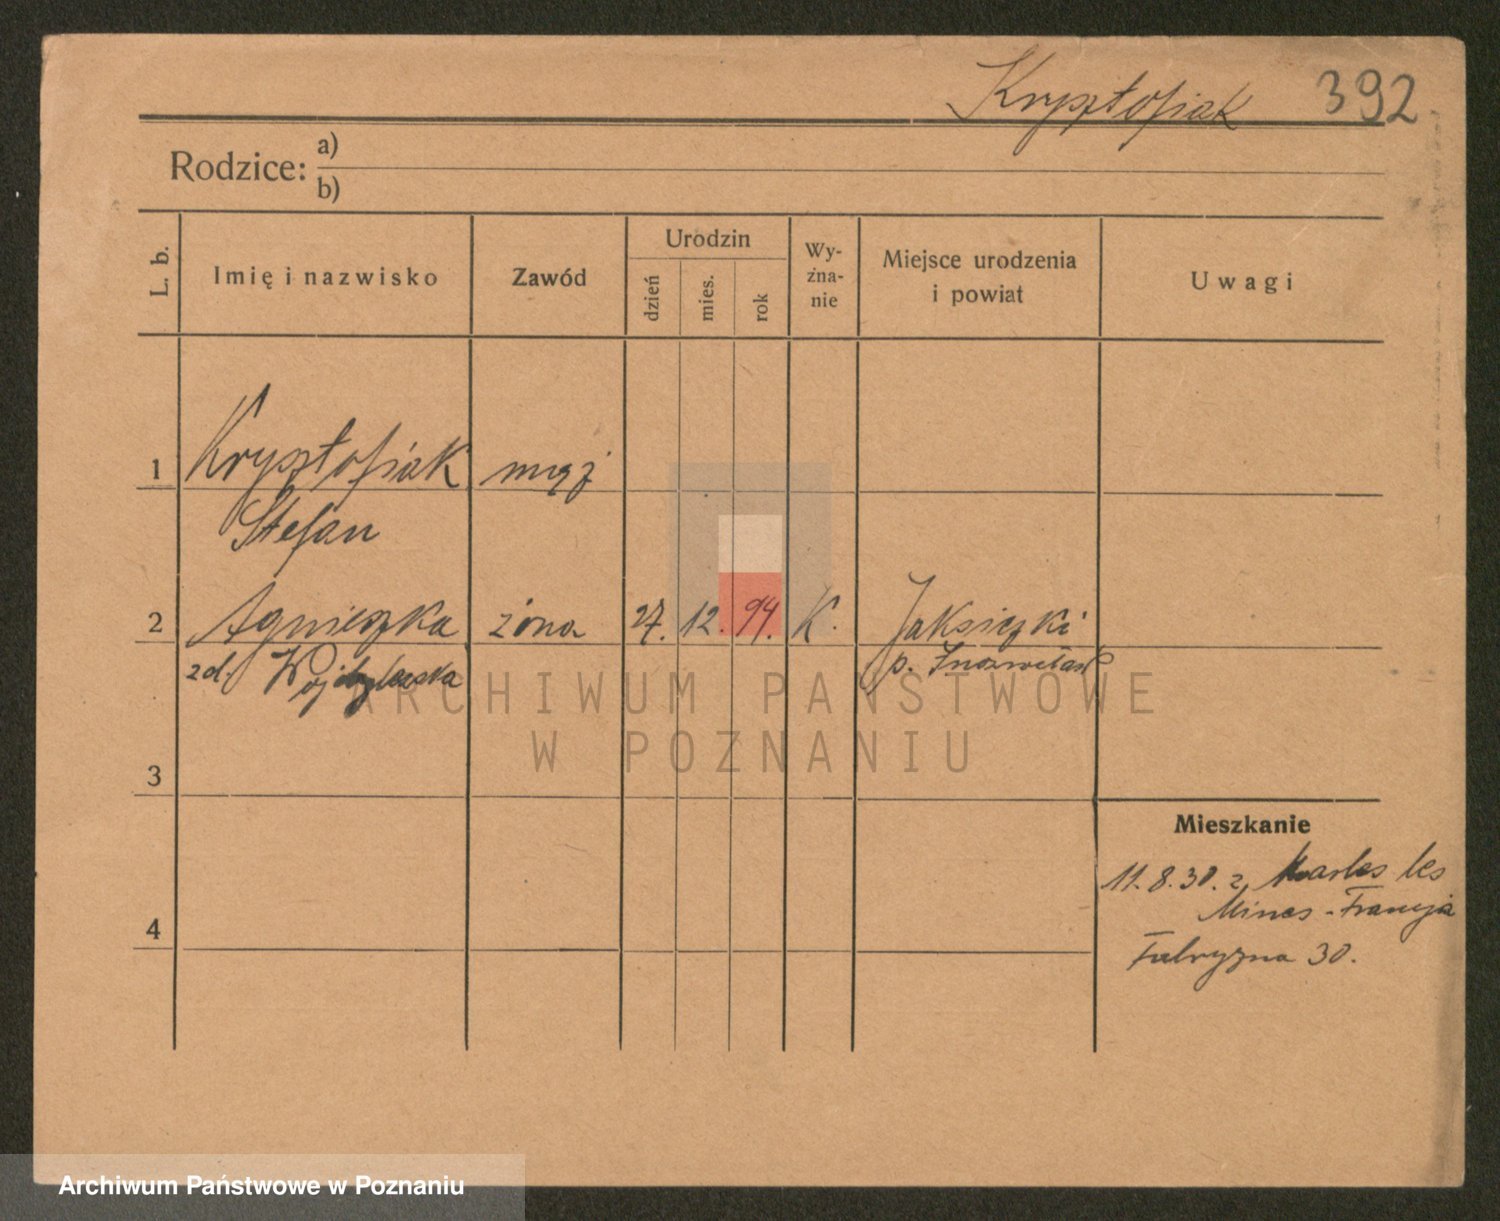 Krysztofiak 392
Rodzice: a)
b)
L. b.
Imię i nazwisko
Zawód
Urodzin
dzień
mies.
rok
Wy-
zna-
nie
Miejsce urodzenia
i powiat
Uwagi
1 Krysztofiak mąż
Stefan
2 Agnieszka żona 27. 12. 94. K. Jaksiczki
zd. p. Inowrocław
3
4
Mieszkanie
11.8.30. z Marles les
Mines - Francja
Fabryzna 30.
ARCHIWUM PAŃSTWOWE
W POZNANIU
Archiwum Państwowe w Poznaniu